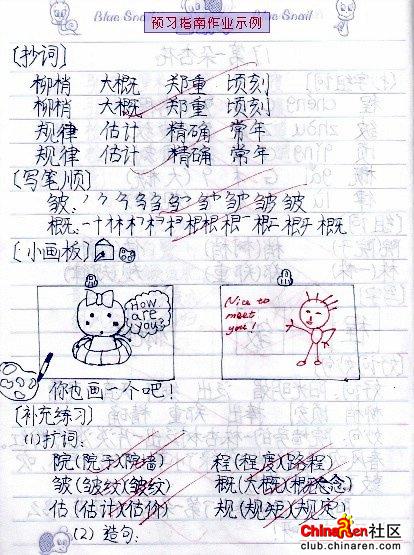 Blue Snail 预习指南作业示例 Blue Snail
[抄词]
柳梢 大概 郑重 顷刻
柳梢 大概 郑重 顷刻
规律 估计 精确 常年
规律 估计 精确 常年
[写笔顺]
皱:
概:
[小画板]
How are you?
Nice to meet you!
你也画一个吧!
[补充练习]
(1)扩词:
院(院子)(院墙) 程(程度)(路程)
皱(皱纹)(皱纹) 概(大概)(概念)
估(估计)(估价) 规(规矩)(规定)
(2)造句:
ChinaRen社区
club.chinaren.com